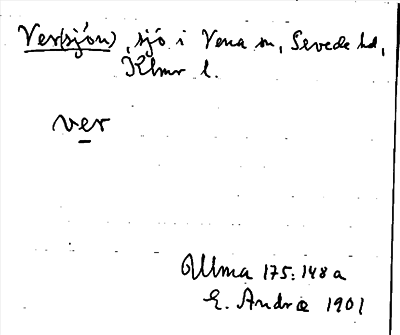 Ver(sjön), sjö i Vena sn, Sevede hd,
Klmr l.
ver
Ulma 175:148 a
E. Andræ 1901